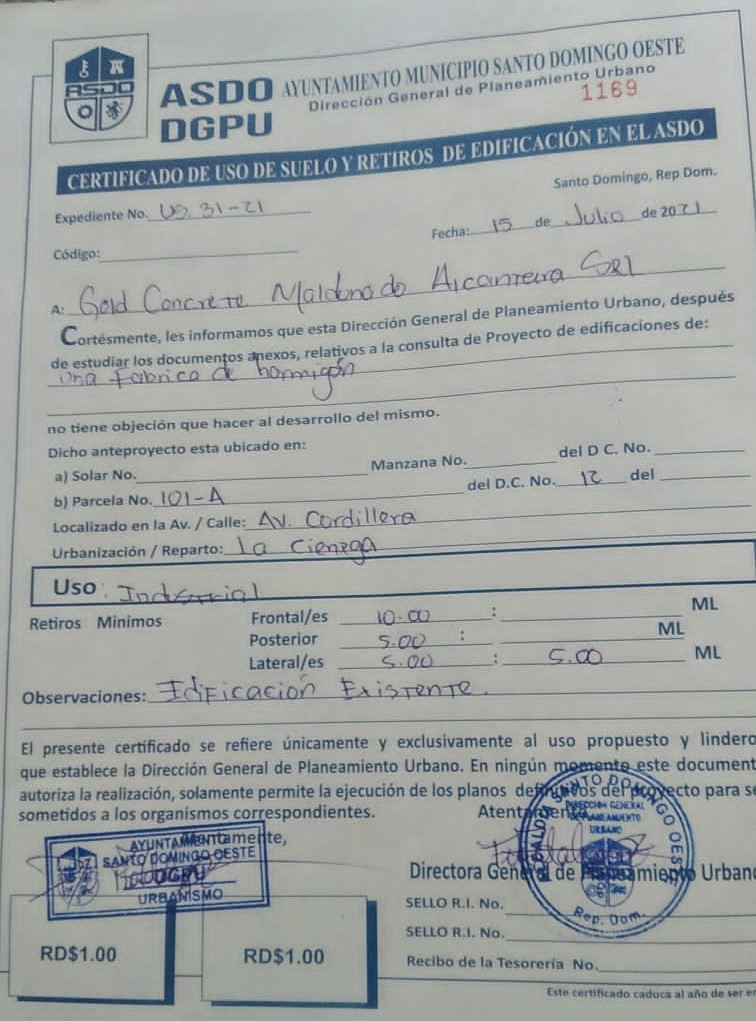 ASDO
ASDO AYUNTAMIENTO MUNICIPIO SANTO DOMINGO OESTE
DGPU Dirección General de Planeamiento Urbano
1169
CERTIFICADO DE USO DE SUELO Y RETIROS DE EDIFICACIÓN EN EL ASDO
Santo Domingo, Rep Dom.
Expediente No. US. 31-21
Fecha: 15 de Julio de 2021
Código:
A: Gold Concrete Maldonado Alcantara SRL
Cortésmente, les informamos que esta Dirección General de Planeamiento Urbano, después
de estudiar los documentos anexos, relativos a la consulta de Proyecto de edificaciones de:
Una Fabrica de hormigón
no tiene objeción que hacer al desarrollo del mismo.
Dicho anteproyecto esta ubicado en:
a) Solar No. Manzana No. del D C. No.
b) Parcela No. 101-A del D.C. No. 12 del
Localizado en la Av. / Calle: Av. Cordillera
Urbanización / Reparto: La Cienega
Uso : Industrial
Retiros Minimos Frontal/es 10.00 : ML
Posterior 5.00 : ML
Lateral/es 5.00 : 5.00 ML
Observaciones: Edificación Existente.
El presente certificado se refiere únicamente y exclusivamente al uso propuesto y lindero
que establece la Dirección General de Planeamiento Urbano. En ningún momento este document
autoriza la realización, solamente permite la ejecución de los planos definitivos del proyecto para se
sometidos a los organismos correspondientes.
Atentamente, Atentamente,
AYUNTAMIENTO
SANTO DOMINGO OESTE
DGPU
URBANISMO
ALCALDIA SANTO DOMINGO OESTE
DIRECCION GENERAL
PLANEAMIENTO
URBANO
Rep. Dom.
Directora General de Planeamiento Urbano
SELLO R.I. No.
SELLO R.I. No.
RD$1.00 RD$1.00
Recibo de la Tesorería No.
Este certificado caduca al año de ser em